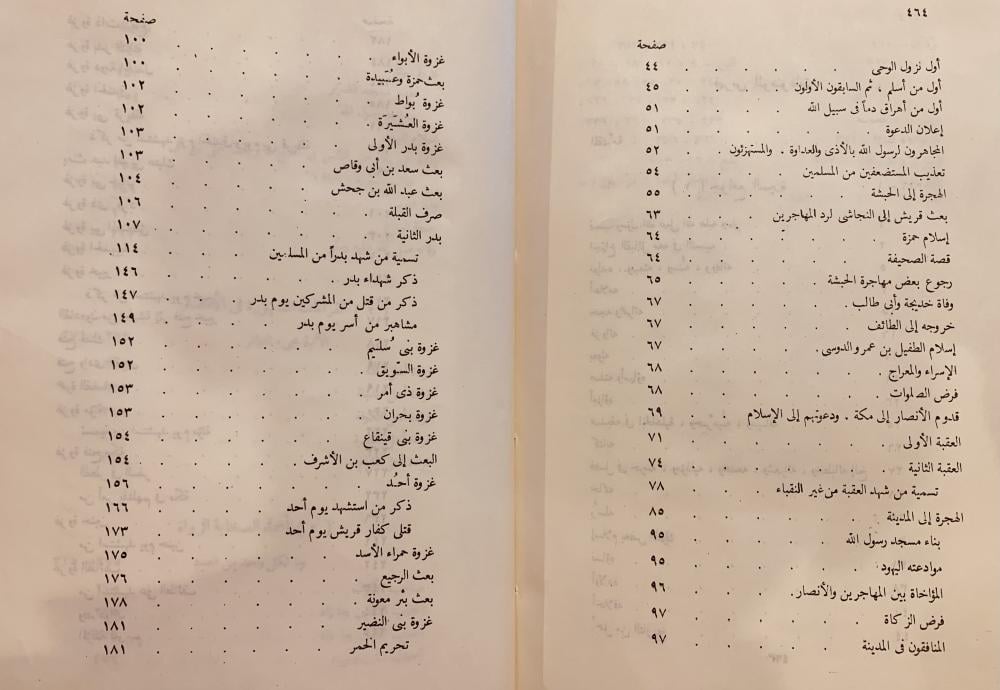 ٤٦٤
صفحة
أول نزول الوحى . . . . . ٤٤
أول من أسلم ، ثم السابقون الأولون . . . . ٤٥
أول من أهراق دماً فى سبيل الله . . . . ٥١
إعلان الدعوة . . . . . . ٥١
المجاهرون لرسول الله بالأذى والعداوة . والمستهزئون . . . ٥٢
تعذيب المستضعفين من المسلمين . . . . ٥٤
الهجرة إلى الحبشة . . . . . ٥٥
بعث قريش إلى النجاشى لرد المهاجرين . . . . ٦٣
إسلام حمزة . . . . . . ٦٤
قصة الصحيفة . . . . . . ٦٤
رجوع بعض مهاجرة الحبشة . . . . . ٦٥
وفاة خديجة وأبى طالب . . . . . ٦٧
خروجه إلى الطائف . . . . . ٦٧
إسلام الطفيل بن عمرو الدوسى . . . . ٦٧
الإسراء والمعراج . . . . . ٦٨
فرض الصلوات . . . . . . ٦٨
قدوم الأنصار إلى مكة . ودعوتهم إلى الإسلام . . . ٦٩
العقبة الأولى . . . . . . ٧١
العقبة الثانية . . . . . . ٧٤
تسمية من شهد العقبة من غير النقباء . . . . ٧٨
الهجرة إلى المدينة . . . . . ٨٥
بناء مسجد رسول الله . . . . . ٩٥
موادعته اليهود . . . . . ٩٥
المؤاخاة بين المهاجرين والأنصار . . . . ٩٦
فرض الزكاة . . . . . . ٩٧
المنافقون فى المدينة . . . . . ٩٧
صفحة
غزوة الأبواء . . . . . . ١٠٠
بعث حمزة وعُبيدة . . . . . ١٠٠
غزوة بُواط . . . . . . ١٠٢
غزوة العُشَيرَة . . . . . ١٠٢
غزوة بدر الأولى . . . . . ١٠٣
بعث سعد بن أبى وقاص . . . . . ١٠٣
بعث عبد الله بن جحش . . . . . ١٠٤
صرف القبلة . . . . . . ١٠٦
بدر الثانية . . . . . . ١٠٧
تسمية من شهد بدراً من المسلمين . . . . ١١٤
ذكر شهداء بدر . . . . . ١٤٦
ذكر من قتل من المشركين يوم بدر . . . . ١٤٧
مشاهير من أسر يوم بدر . . . . . ١٤٩
غزوة بنى سُلَيم . . . . . ١٥٢
غزوة السويق . . . . . . ١٥٢
غزوة ذى أمر . . . . . . ١٥٣
غزوة بحران . . . . . . ١٥٣
غزوة بنى قينقاع . . . . . ١٥٤
البعث إلى كعب بن الأشرف . . . . . ١٥٤
غزوة أحُد . . . . . . ١٥٦
ذكر من استشهد يوم أحد . . . . . ١٦٦
قتلى كفار قريش يوم أحد . . . . . ١٧٣
غزوة حمراء الأسد . . . . . ١٧٥
بعث الرجيع . . . . . . ١٧٦
بعث بئر معونة . . . . . ١٧٨
غزوة بنى النضير . . . . . ١٨١
تحريم الخمر . . . . . . ١٨١